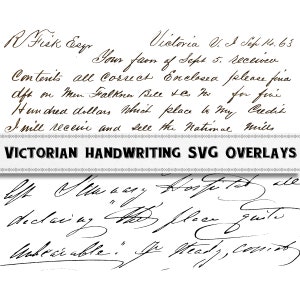 R. Fisk Esqr Victoria V. I Sep 14. 63
Your favor of Sept 5. received
Contents all correct Enclosed please find
dft on Mess Faulkner Bell & Co for five
Hundred dollars which place to my Credit
I will receive and sell the National Mills
VICTORIAN HANDWRITING SVG OVERLAYS
left Seminary Hospital, all
declaring "this place quite
unbearable."